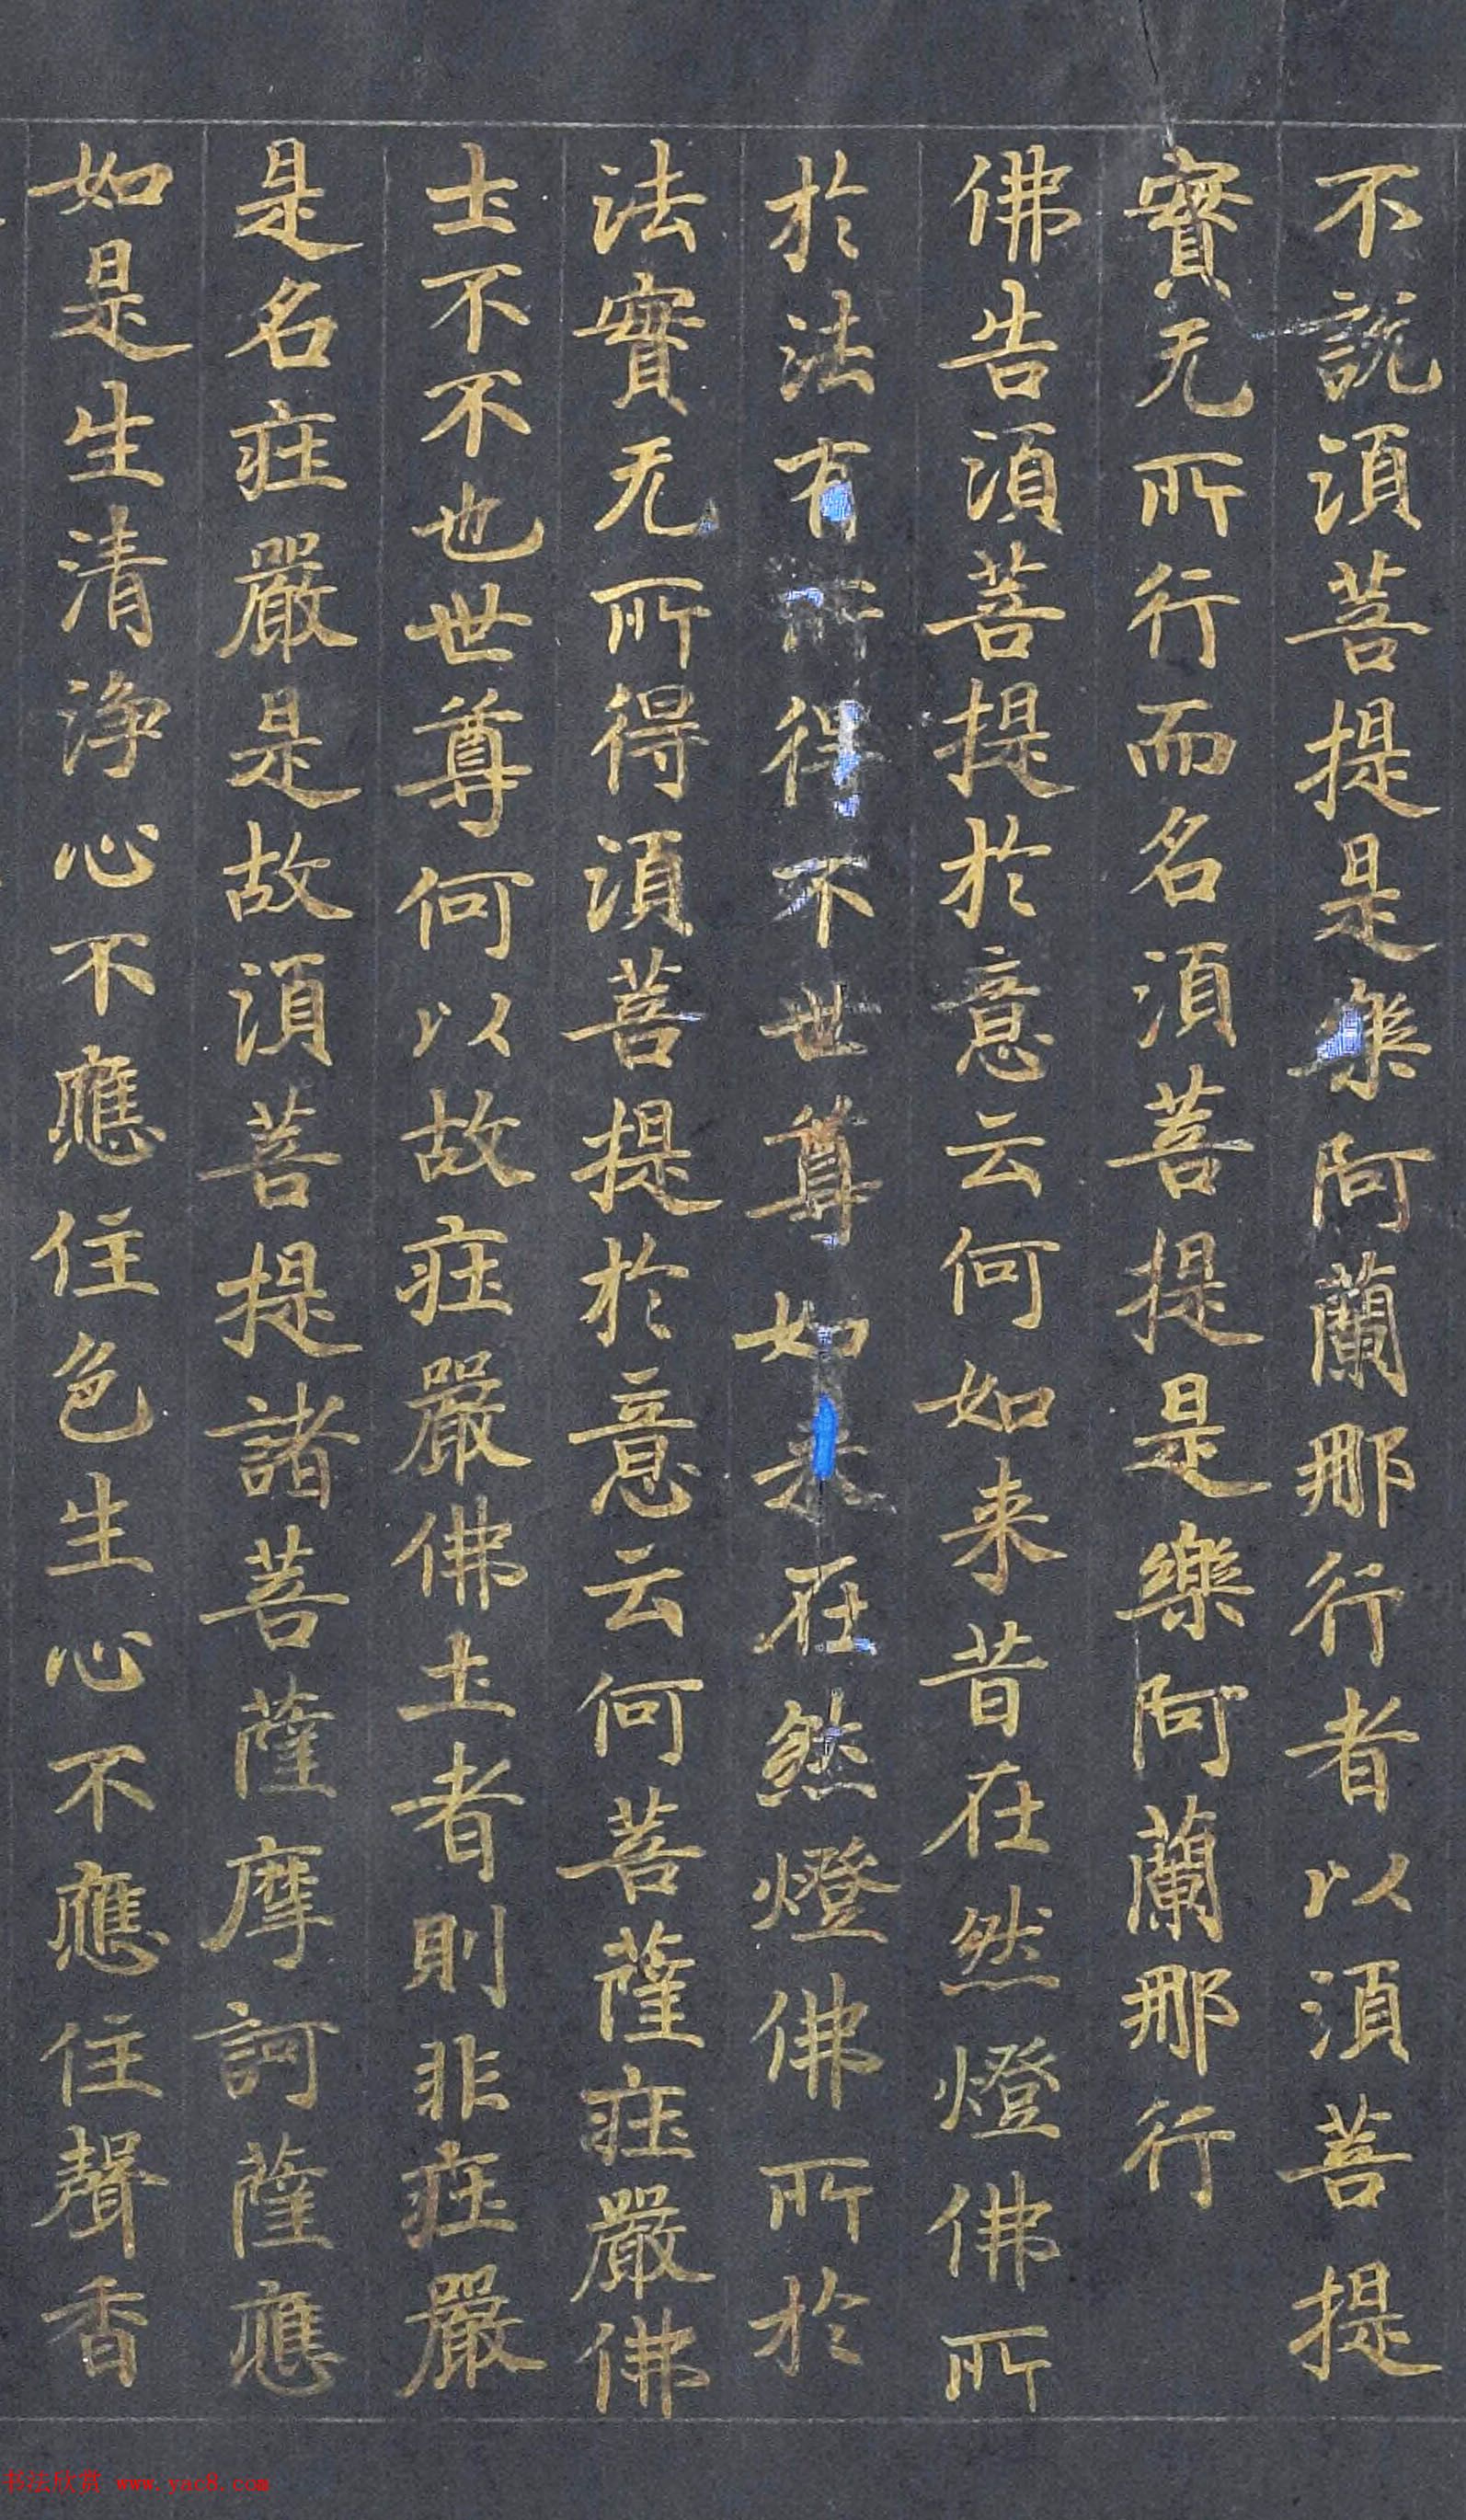 不說須菩提是樂阿蘭那行者以須菩提
實无所行而名須菩提是樂阿蘭那行
佛告須菩提於意云何如来昔在然燈佛所
於法有所得不世尊如来在然燈佛所於
法實无所得須菩提於意云何菩薩莊嚴佛
土不不也世尊何以故莊嚴佛土者則非莊嚴
是名莊嚴是故須菩提諸菩薩摩訶薩應
如是生清淨心不應住色生心不應住聲香
书法欣赏 www.yac8.com